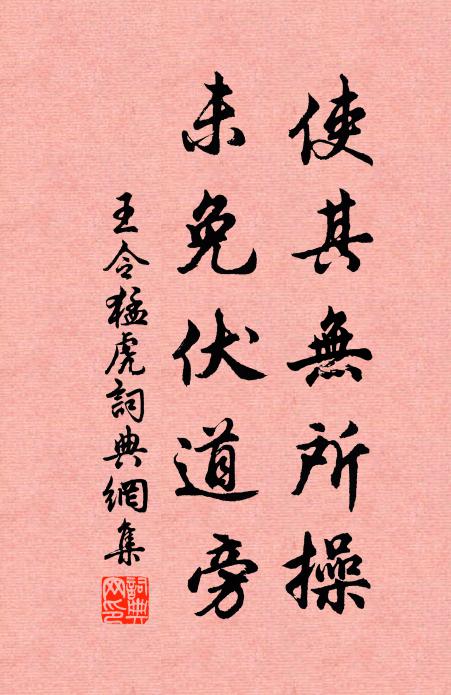 使其無所操
未免伏道旁
王令猛虎詞典網集
詞典網印